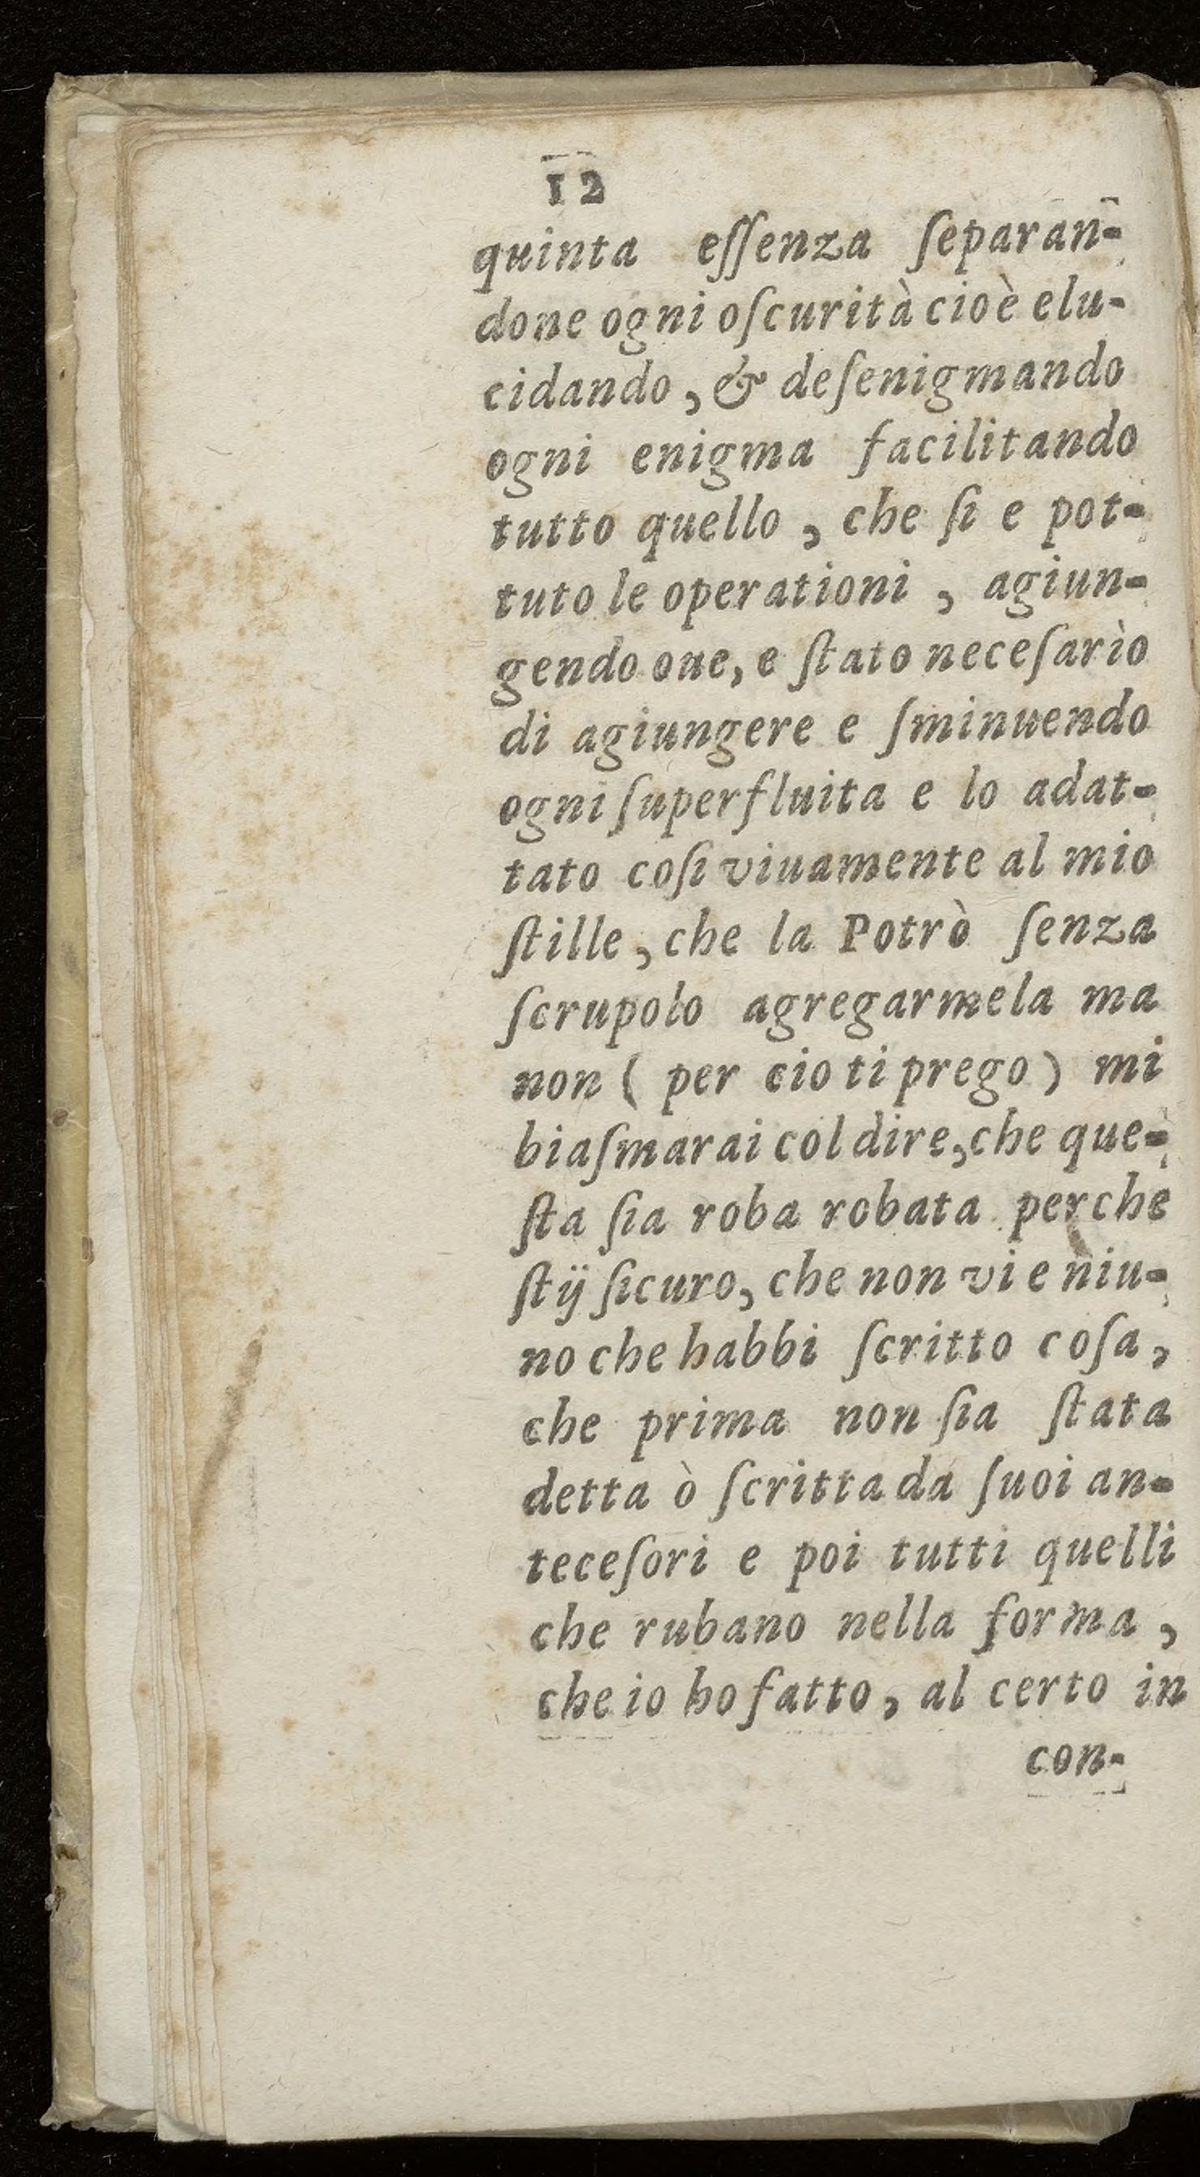 12
quinta eſſenza ſeparan-
done ogni oſcurità cioè elu-
cidando, & deſenigmando
ogni enigma facilitando
tutto quello, che ſi e pot-
tuto le operationi, agiun-
gendo oue, e ſtato neceſarìo
di agiungere e ſminuendo
ogni ſuperfluita e lo adat-
tato coſi viuamente al mio
ſtille, che la Potrò ſenza
ſcrupolo agregarmela ma
non ( per cio ti prego ) mi
biaſmarai col dire, che que-
ſta ſia roba robata perche
ſtij ſicuro, che non vi e niu-
no che habbi ſcritto coſa,
che prima non ſia ſtata
detta ò ſcritta da ſuoi an-
teceſori e poi tutti quelli
che rubano nella forma,
che io ho fatto, al certo in
con-